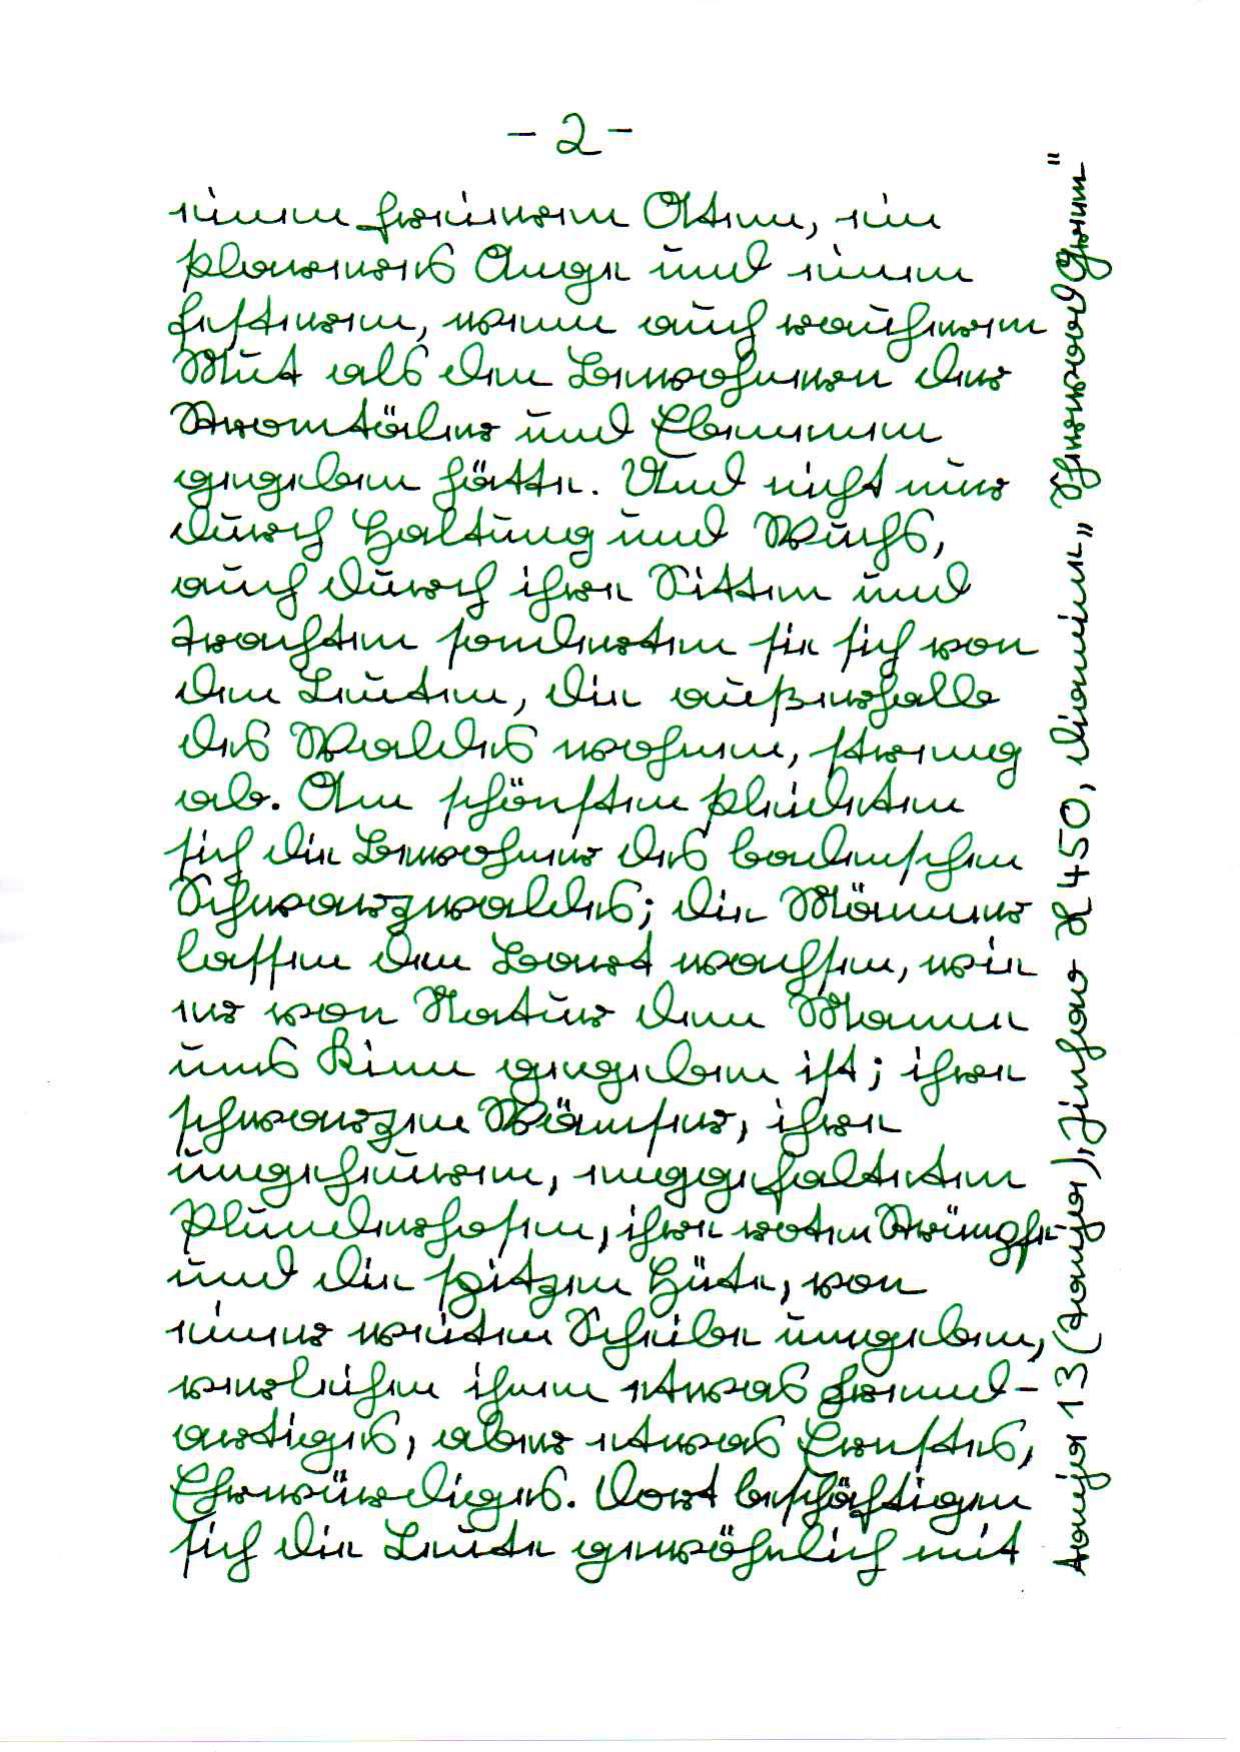 - 2 -
einen freieren Atem, ein
klareres Auge und einen
festeren, wenn auch rauheren
Mut als den Bewohnern der
Stromtäler und Ebenen
gegeben hätte. Und nicht nur
durch Haltung und Wuchs,
auch durch ihre Sitten und
Trachten sonderten sie sich von
den Leuten, die außerhalb
des Waldes wohnen, streng
ab. Am schönsten kleideten
sich die Bewohner des badenschen
Schwarzwaldes; die Männer
lassen den Bart wachsen, wie
er von Natur dem Manne
ums Kinn gegeben ist; ihre
schwarzen Wämser, ihre
ungeheuren, enggefalteten
Pluderhosen, ihre roten Strümpfe
und die spitzen Hüte, von
einer weiten Scheibe umgeben,
verleihen ihnen etwas Fremd-
artiges, aber etwas Ernstes,
Ehrwürdiges. Dort beschäftigen
sich die Leute gewöhnlich mit
13 Jinhao X450, Diamine „Sherwood Green"